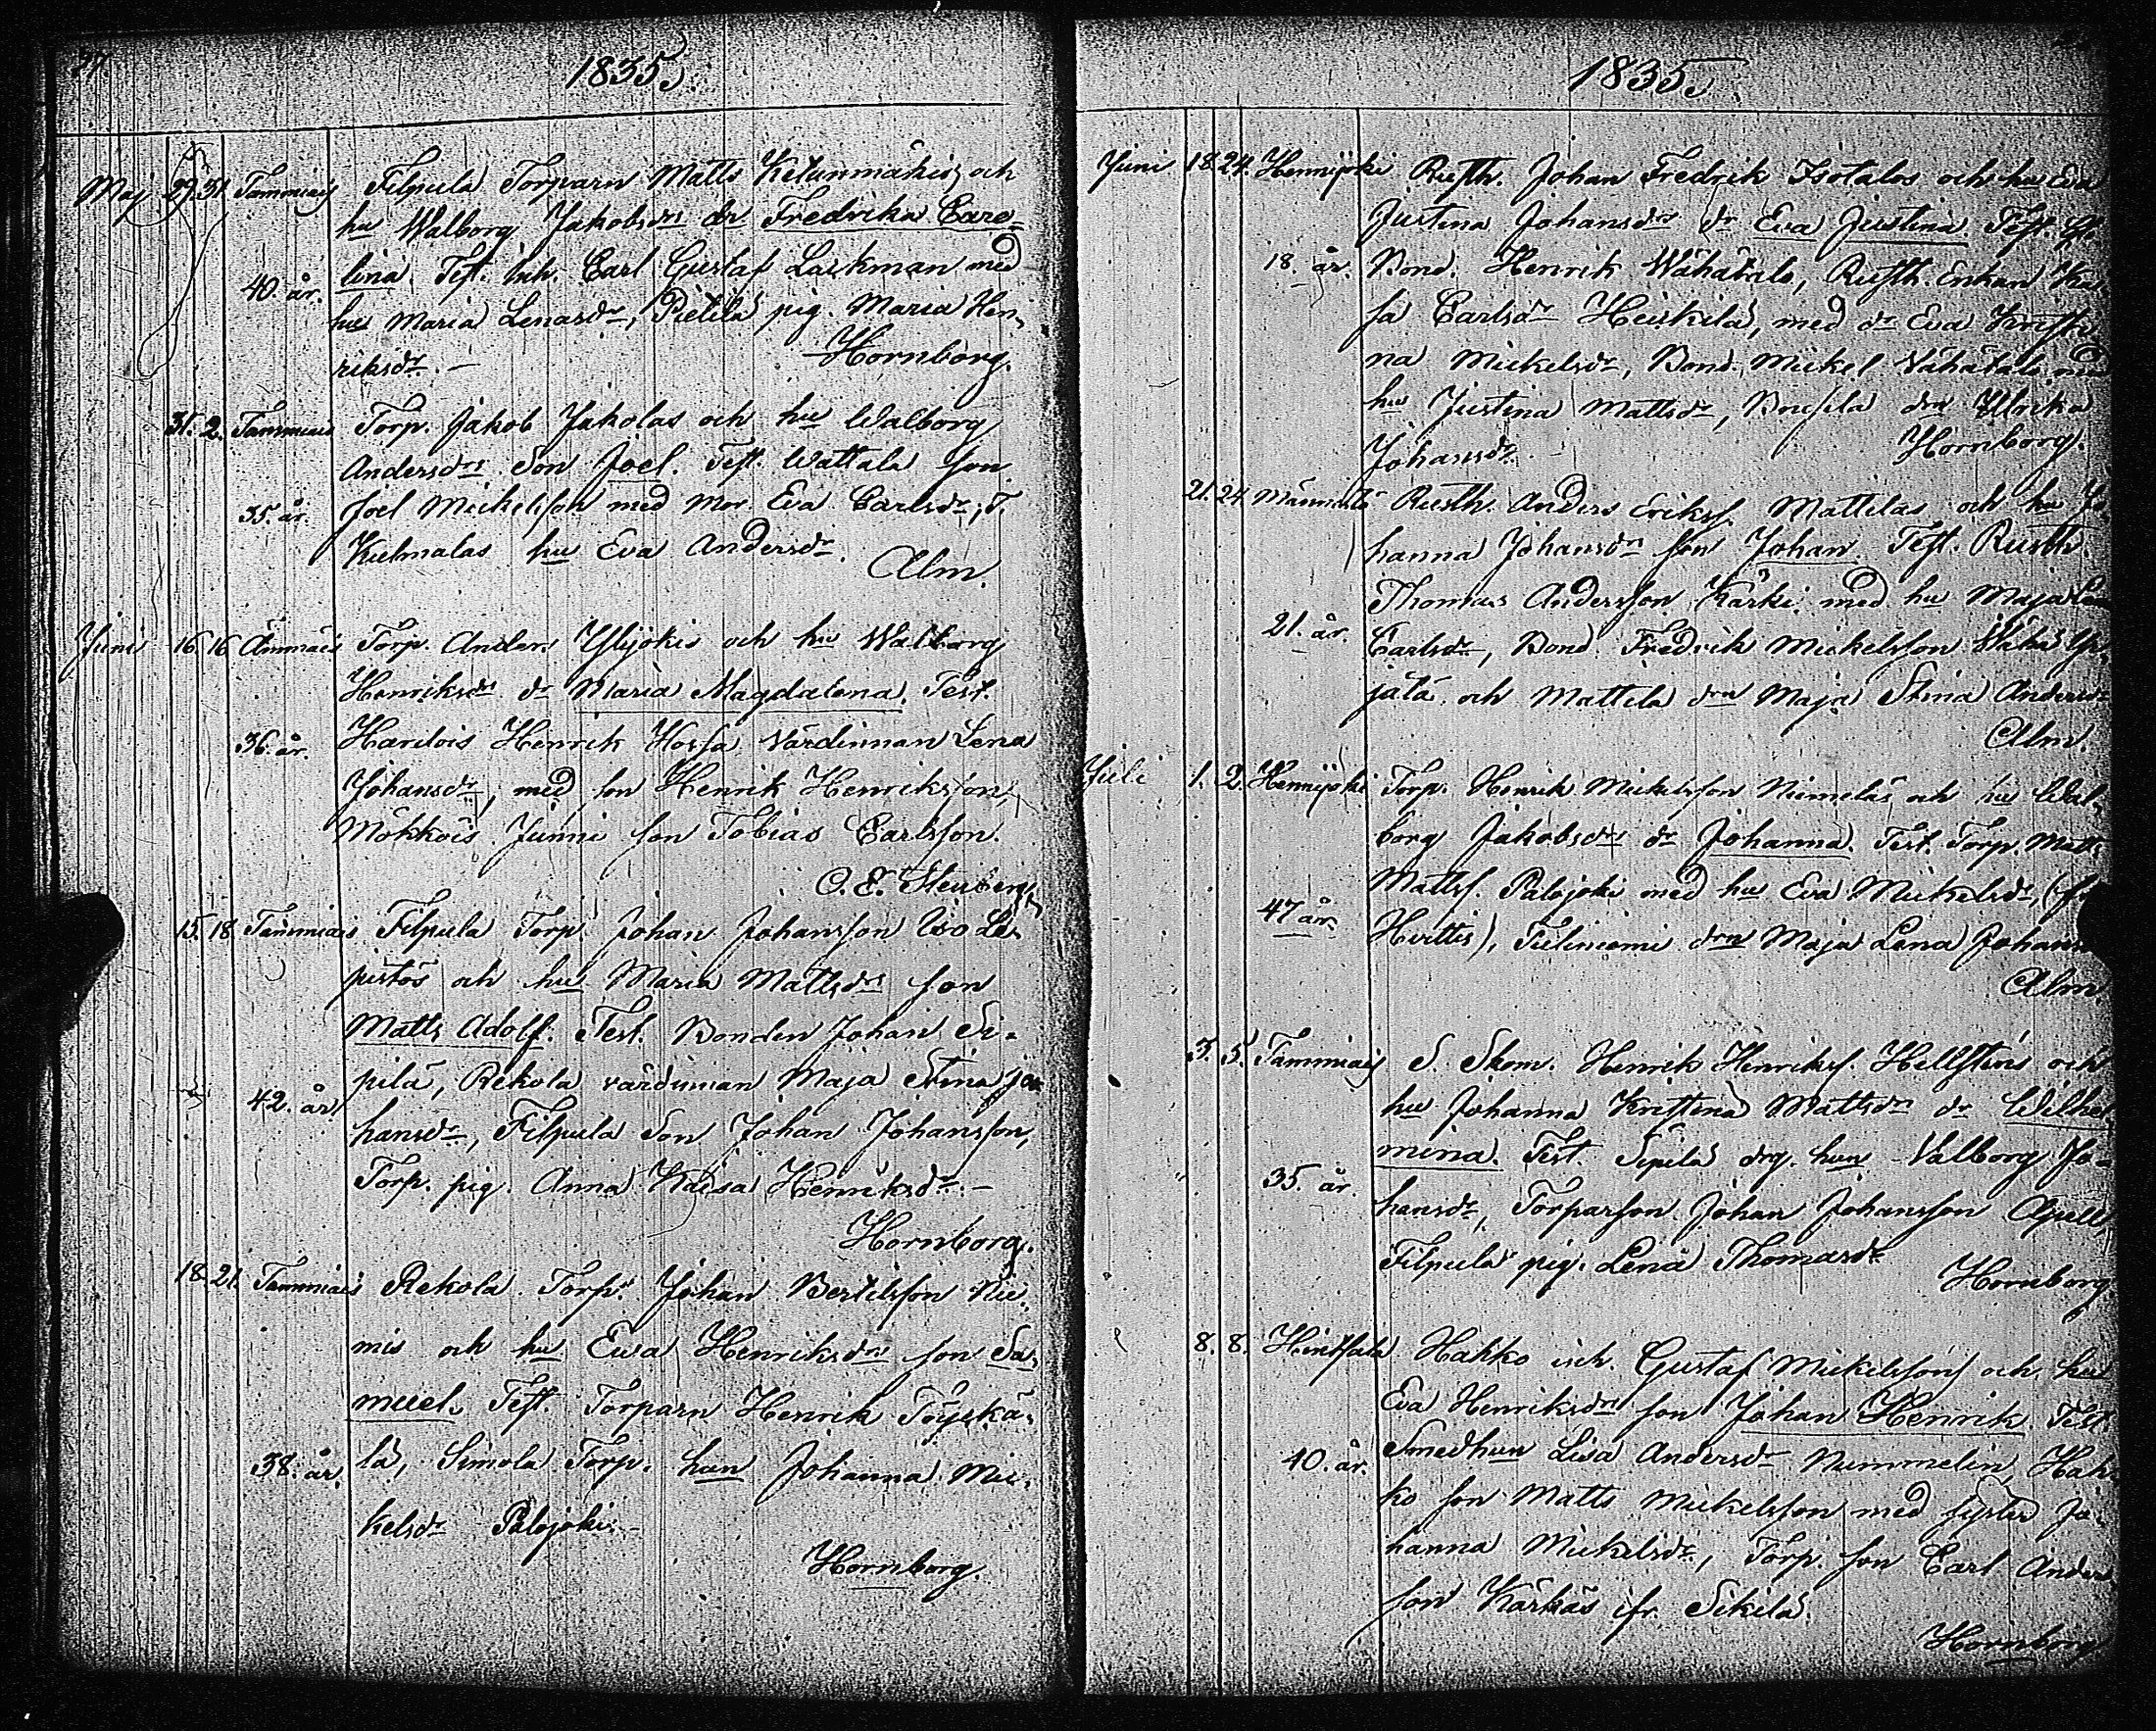 27.
1835.
Maj 29. 31. Tammiais Filpula Torparn Matts Ketunmäkis och
hu Walborg Jakobsdrs dr Fredrika Caro-
40. år. lina. Test. Inh. Carl Gustaf Lackman med
hu Maria Lenasdr, Pietilä pig. Maria Hen-
riksdr. Hornborg.
31. 2. Tammiais Torp. Jakob Jakolas och hu Walborg
Andersdrs Son Joel. Test. Wattala son
35. år. Joel Mickelsson med mor Eva Carlsdr, T.
Kulmalas hu Eva Andersdr.
Alm.
Juni 16 16 Ämmäis Torp. Anders Ylijokis och hu Walborg
Henriksdrs dr Maria Magdalena. Test.
36. år. Hardois Henrik Hossa värdinnan Lena
Johansdr, med son Henrik Henriksson,
Mökkois Junni son Tobias Carlsson.
15. 18. Tammiais Filpula Torp. Johan Johansson Iso Le-
pistös och hu Maria Mattsdrs son
Matts Adolf. Test. Bonden Johan Si-
pilä, Rekola värdinnan Maja Stina Jo-
42. år hansdr, Filpula Son Johan Johansson,
Torp. pig. Anna Kaisa Henriksdr. —
Hornborg.
18. 21. Tammiais Rekola Torp. Johan Bertilsson Nie-
mis och hu Ewa Henriksdrs son Sa-
muel. Test. Torparn Henrik Töyskä-
38. år. lä, Simola Torp. hun Johanna Mic-
kelsdr Palojoki. —
Hornborg.
1835.
Juni 18. 24. Hennijoki Rusth. Johan Fredrik Isotalos och hu Eva
Justina Johansdrs dr Eva Justina. Test.
18. år. Bond. Henrik Wähätalo, Rusth. Enkan
sa Carlsdr Heikilä, med dr Eva Kristi-
na Mickelsdr, Bond. Mickel Vähätalo med
hu Justina Mattsdr, drn Ulrika
Johansdr. Hornborg.
21. 24. Rusth. Anders Erikss. Mattilas och hu Jo-
hanna Johansdrs son Johan. Test. Rusth.
Thomas Andersson Kärki med hu Maja
21. år. Carlsdr, Bond. Fredrik Mickelsson Wähä
jätä, och Mattila drn Maja Stina Andersdr
Alm.
Juli 1. 2. Hennijoki Torp. Henrik Mickelsson Niemeläs och hu Wal-
borg Jakobsdrs dr Johanna. Test. Torp. Matts
Mattss. Palojoki med hu Eva Mickelsdr,
47 år. Hvittis), drn Maja Lena Johans
Alm
3. 5. Tammiais S. Skom. Henrik Henrikss. Hellsténs och
hu Johanna Kristina Mattsdrs dr Wilhel
mina. Test. Sipilä drg. hun Valborg Jo-
35. år. hansdr, Torparson Johan Johansson
Filpula pig. Lena Thomasdr
Hornborg
8. 8. Hakko inh. Gustaf Mickelssons och hu
Eva Henriksdrs son Johan Henrik. Test.
40. år. Smedhun Lisa Andersdr Nummelin, Hak-
ko son Matts Mickelsson med syster Jo-
hanna Mickelsdr, Torp. son Carl Anders
son Kärkäs ifr. Sikilä.
Hornborg